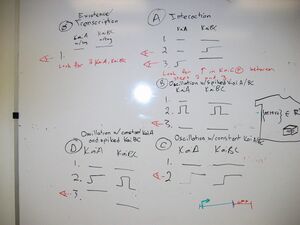 Existence/
Transcription
KaiA
KaiBC
1.
Look for ↑ KaiA, KaiBC
A Interaction
KaiA KaiBC
1
2
3
Look for ↑ in KaiC Ⓟ between
steps 2 and 3
B Oscillation w/ spiked KaiA/BC
KaiA KaiBC
1.
2.
3.
Oscillation w/ constant KaiA
and spiked KaiBC
D KaiA KaiBC
1.
2.
3.
C Oscillation w/ constant KaiA/BC
KaiA KaiBC
1.
2.